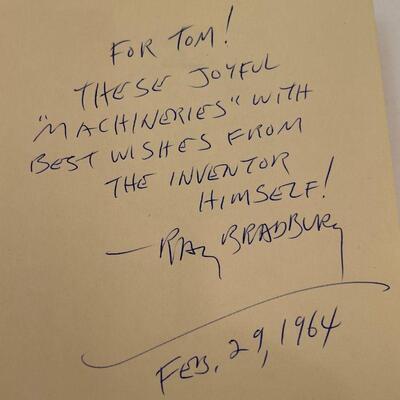 FOR TOM!
THESE JOYFUL
"MACHINERIES" WITH
BEST WISHES FROM
THE INVENTOR
HIMSELF!
— RAY BRADBURY
FEB. 29, 1964